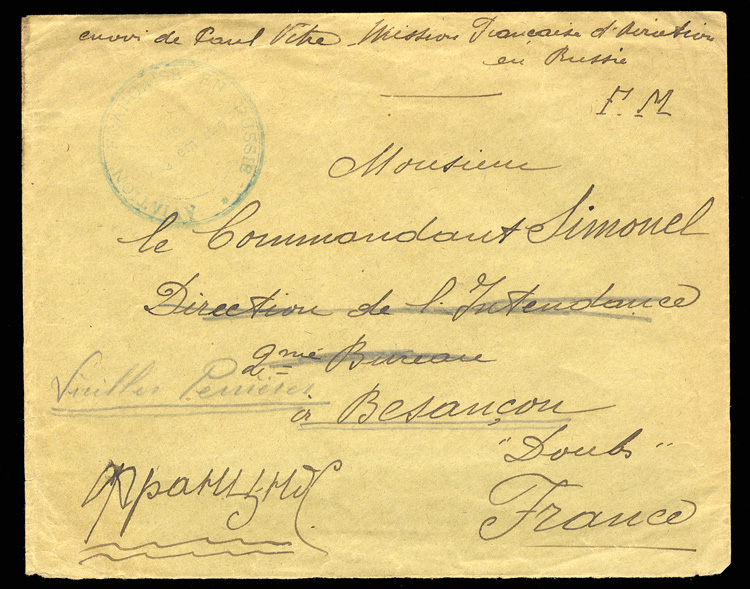 envoi de Paul Vitre Mission Française d'Aviation
en Russie
F. M
AVIATION FRANÇAISE EN RUSSIE
Monsieur
le Commandant Simonel
Direction de l'Intendance
2me Bureau
Vieilles Perrières
à Besançon
"Doubs"
France